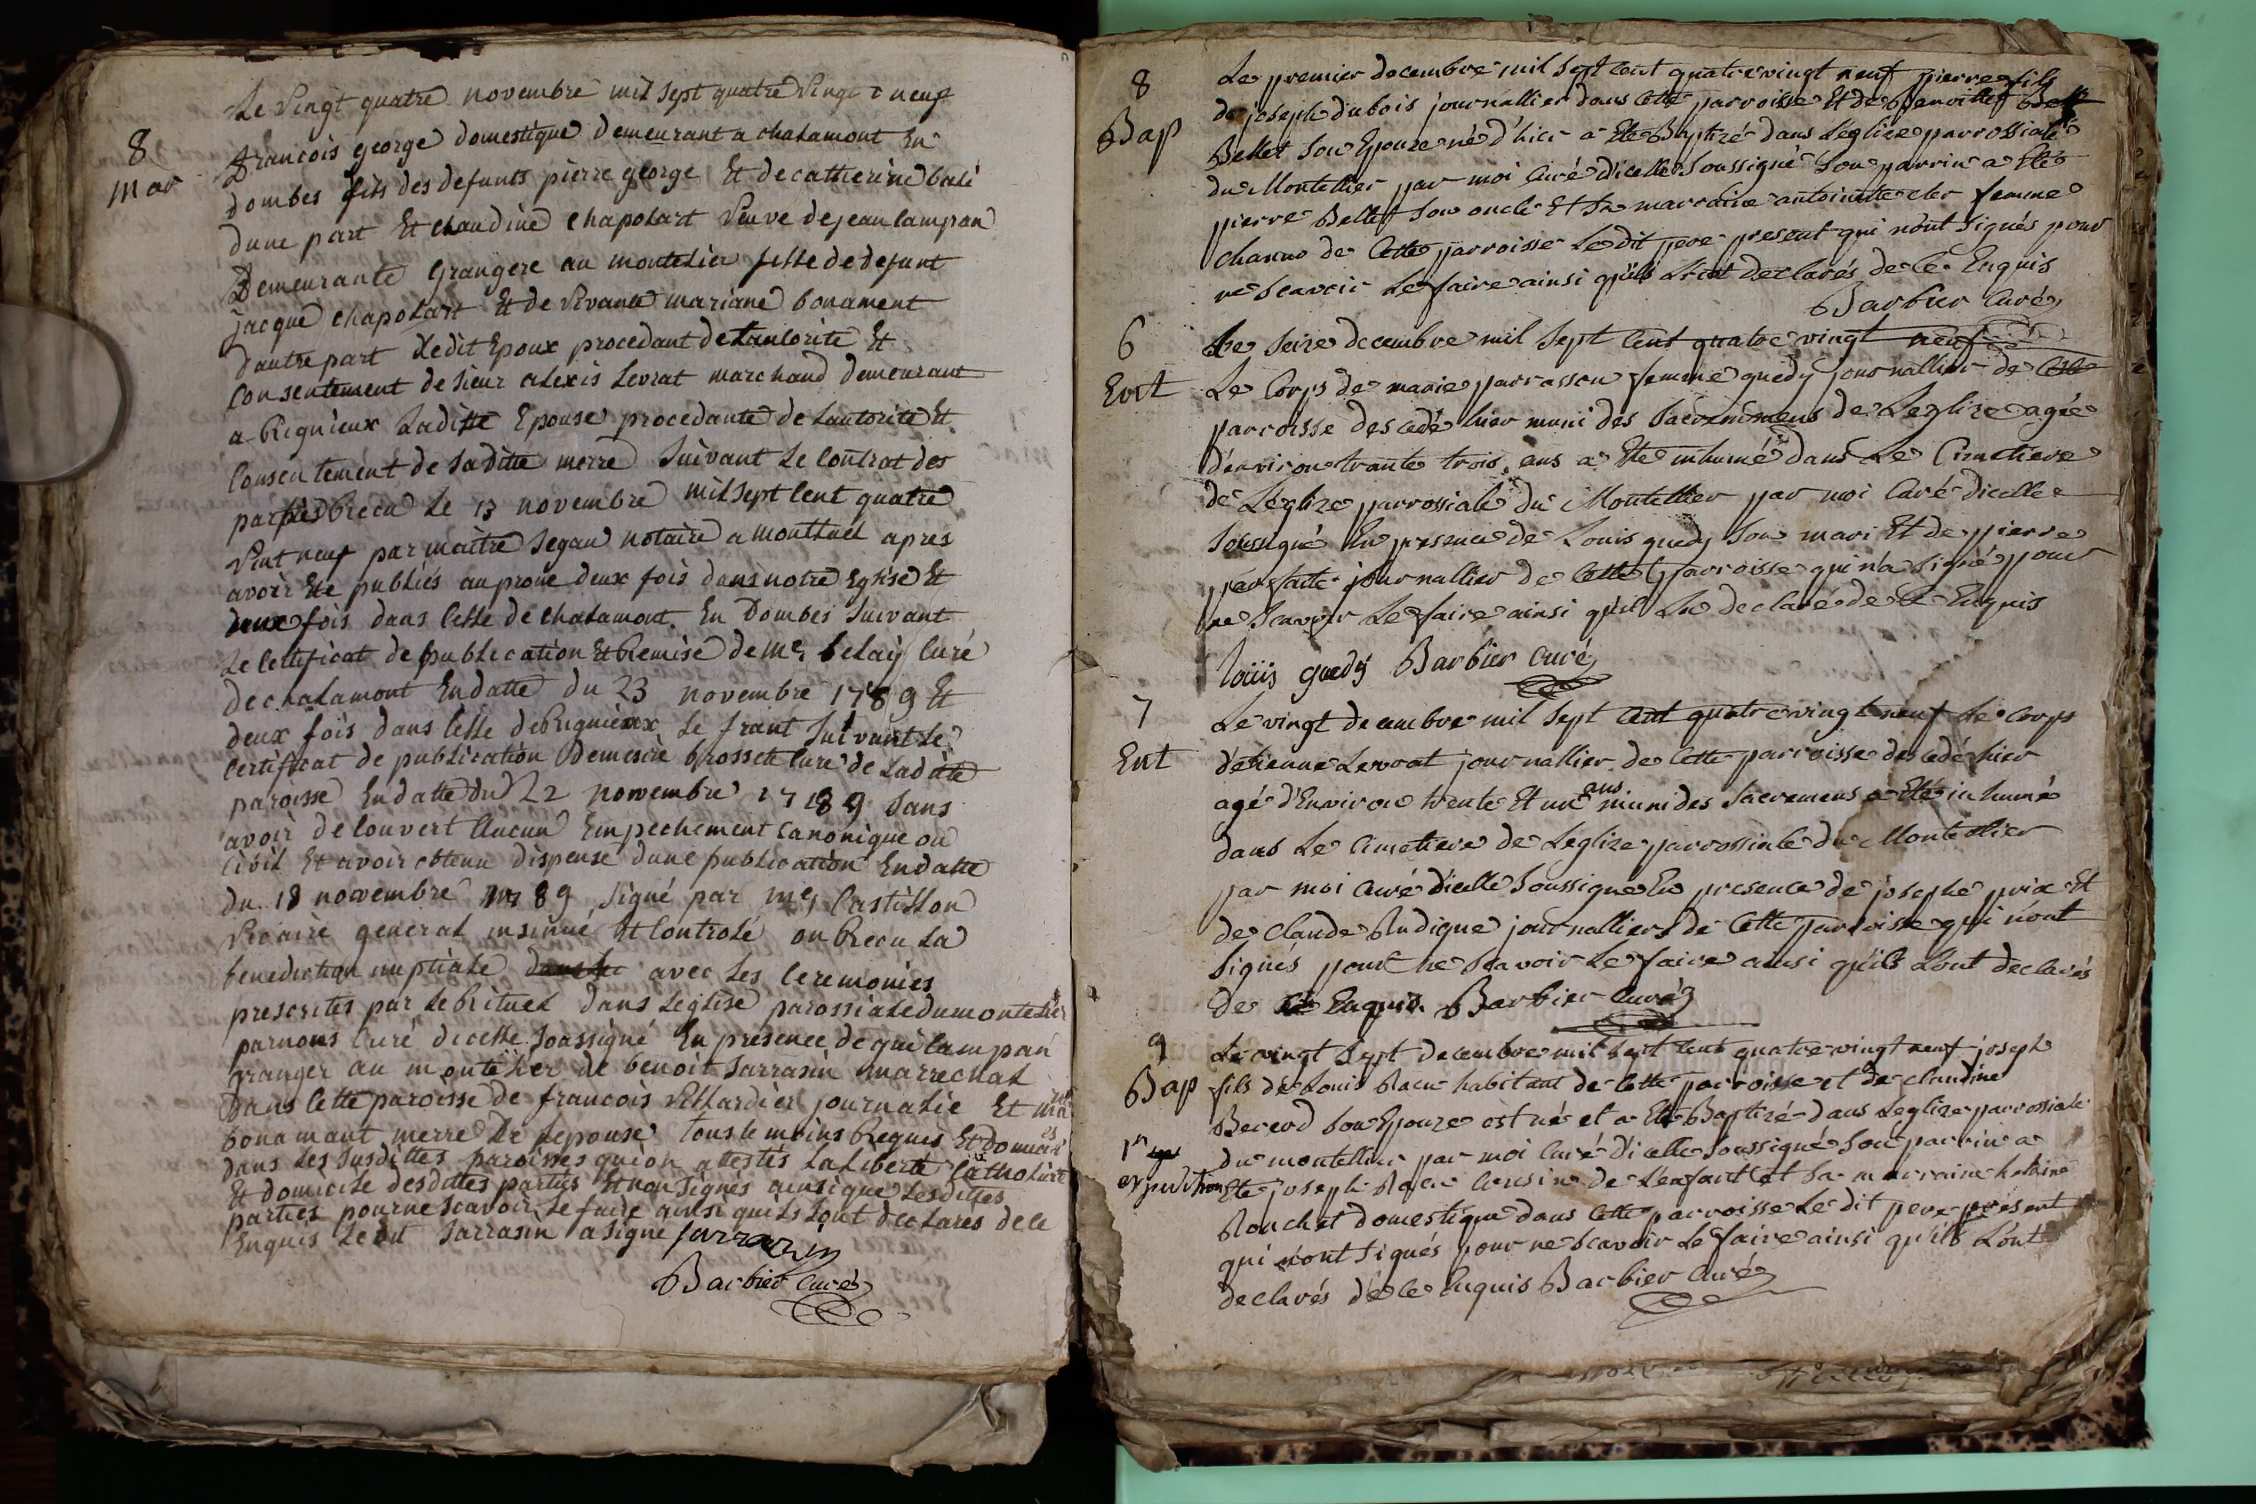 8
mar
Le vingt quatre novembre mil sept quatre vingt neuf
francois george domestique demeurant a chalamont En
dombes fils des defunts pierre george Et de catherine bali
dune part Et claudine chapolart veuve de jean lampan
Demeurante grangere au montelier fille de defunt
jacque chapolart Et de vivante mariane bonament
dautre part Ledit Epoux procedant de Lautorite Et
consentement de sieur alexis Levrat marchand demeurant
a Rignieux Laditte Epouse procedante de Lautorite Et
Consentement de saditte merre suivant Le contrat des
parties Recu Le 13 novembre mil sept cent quatre
vint neuf par maitre segau notaire a montluel apres
avoir Ete publiés au prone deux fois dans notre Eglise Et
deux fois dans Celle de chalamont En Dombes suivant
Le certificat de publication Et Remise de mr belay curé
de chalamont En datte du 23 novembre 1789 Et
deux fois dans Celle de Rignieux Le frant suivant Le
certificat de publication de mesire brossette curé de Laditte
paroisse En datte du 22 novembre 1789 sans
avoir decouvert aucun Empechement canonique ou
civil Et avoir obtenu dispense dune publication En datte
du 18 novembre 1789 signé par mr Castillon
vicaire general insinué Et Controlé on Recu La
benediction nuptiale avec Les ceremonies
prescrites par Le Rituel dans Leglise parossiale du montelier
par nous curé dicelle soussigné En presence de gui lampan
granger au montelier de benoit sarrasin marrechal
dans Cette paroisse de francois villardier journalie Et
bonamant merre de Lepouse tous temoins Requis Et
dans Les susdittes paroisses qui on attestés La Liberté
Et domicile desdittes parties Et non signés ainsi que Lesdittes
parties pour ne scavoir Le faire ainsi quils Lont declarés de ce
Enquis Ledit sarrasin a signé sarrazin
Barbier curé
8
Bap
Le premier decembre mil sept cent quatre vingt neuf pierre fils
de joseph dubois journallier dans cette parroisse Et de
Bellet son Epouze né d'hier a Ete Baptizé dans L'eglize parrossiale
du Montellier par moi Curé d'icelle Soussigné Son parrin a Eté
pierre Bellet Son oncle Et Sa marraine antoinette cler femme
channo de Cette parroisse Le dit pere present qui n'ont Signés pour
ne Scavoir Le faire ainsi qu'ils L'ont Declarés de Ce Enquis
Barbier Curé
6
Ent
Le Seize decembre mil Sept Cent quatre vingt neuf
Le Corps de marie parrasson femme guedy journallier de Cette
parroisse descedé hier muni des Sacremens de Leglize agée
d'environ trante trois ans a Ete inhumé dans Le Cimetiere
de Leglize parrossiale du Montellier par moi Curé dicelle
Sousigné En presence de Louis guedy Son mari Et de pierre
journallier de Cette parroisse qui n'a Signé pour
ne Scavoir Le faire ainsi qu'il La declaré de Ce Enquis
louis guedy Barbier curé
7
Ent
Le vingt decembre mil Sept Cent quatre vingt neuf Le Corps
d'etienne Levrat journallier de Cette parroisse descedé hier
agé d'Environ trente Et un ans muni des Sacremens a Eté inhumé
dans Le Cimetiere de Leglize parrossiale du Montellier
par moi Curé dicelle Soussigné En presence de joseph prix Et
de Claude Rudigue journalliers de Cette parroisse qui n'ont
Signés pour ne Scavoir Le faire ainsi qu'ils L'ont declarés
de Ce Enquis Barbier Curé
9
Bap
1er
expedition
Le vingt Sept decembre mil Sept Cent quatre vingt neuf joseph
fils de Louis habitant de Cette parroisse et de claudine
Son Epouze est né et a Ete Baptizé dans Leglize parrossiale
du montellier par moi Curé d'icelle Soussigné Son parrin a
Ete joseph Cousin de L'enfant Et Sa marraine
domestique dans Cette parroisse Le dit pere present
qui n'ont Signés pour ne Scavoir Le faire ainsi qu'ils L'ont
declarés de Ce Enquis Barbier Curé